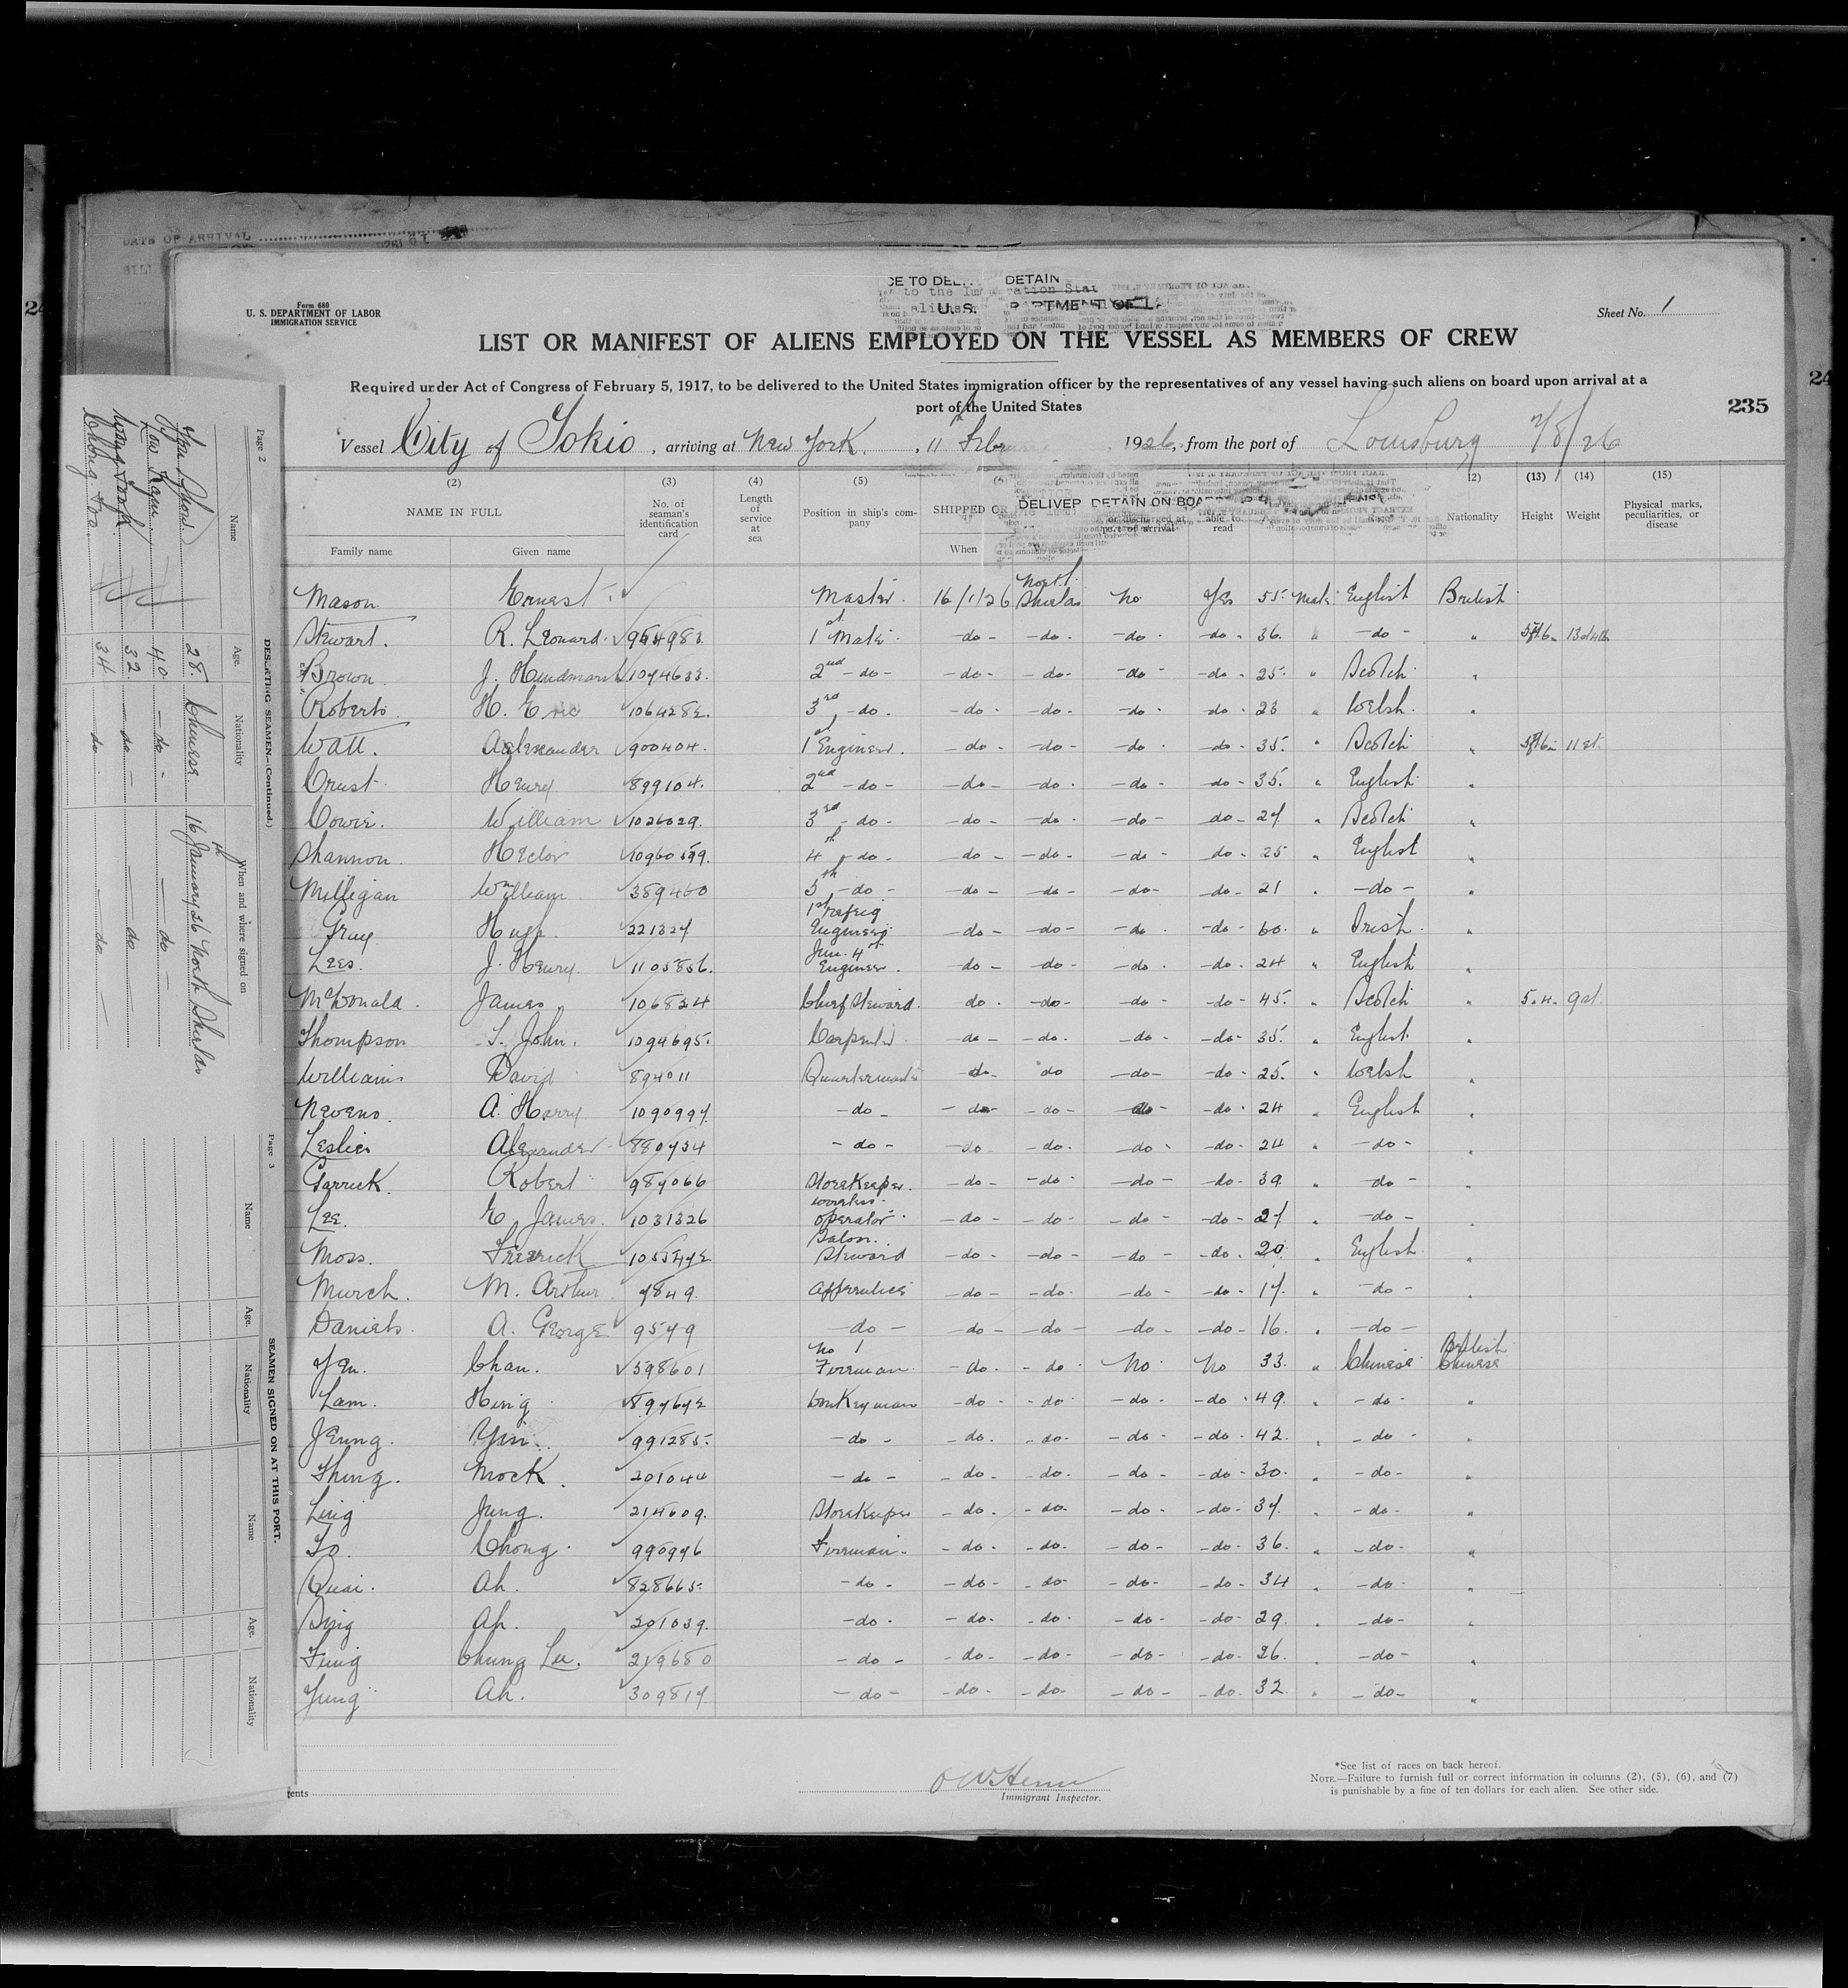 DATE OF ARRIVAL
Form 680
U. S. DEPARTMENT OF LABOR
IMMIGRATION SERVICE
DETAIN
U. S.
Sheet No. 1
LIST OR MANIFEST OF ALIENS EMPLOYED ON THE VESSEL AS MEMBERS OF CREW
Required under Act of Congress of February 5, 1917, to be delivered to the United States immigration officer by the representatives of any vessel having such aliens on board upon arrival at a
port of the United States
235
Vessel City of Tokio, arriving at New York, 11th 1926, from the port of Louisburg
(2) (3) (4) (5) (13) (14) (15)
NAME IN FULL
Family name Given name
No. of seaman's identification card
Length of service at sea
Position in ship's company
SHIPPED OR
When
DELIVER DETAIN ON BOARD
or discharged at port of arrival
able to read
Nationality Height Weight
Physical marks, peculiarities, or disease
Mason Ernest Master 16/1/26 North Shields No Yes 55 Male English British
Stewart R. Leonard 954983 1st Mate -do- -do- -do- -do- 36 " -do- "
Brown J. Hindmarsh 1074633 2nd -do- -do- -do- -do- -do- 25 " Scotch "
Roberts H. Eric 1064282 3rd -do- -do- -do- -do- -do- 23 " Welsh "
Watt Alexander 900404 1st Engineer -do- -do- -do- -do- 35 " Scotch " 11 st.
Crust Henry 899104 2nd -do- -do- -do- -do- -do- 35 " English "
Cowie William 1026029 3rd -do- -do- -do- -do- -do- 27 " Scotch "
Shannon Hector 4th -do- -do- -do- -do- -do- 25 " English "
Milligan William 389460 5th -do- -do- -do- -do- -do- 21 " -do- "
Gray Hugh 221327 1st Refrig Engineer -do- -do- -do- -do- 60 " Irish "
Lees J. Henry 1105856 Jun. 4th Engineer -do- -do- -do- -do- 24 " English "
McDonald James 106824 Chief Steward -do- -do- -do- -do- 45 " Scotch " 5.4. 9 st.
Thompson T. John 1094695 Carpenter -do- -do- -do- -do- 35 " English "
Williams David 894011 Quartermaster -do- do -do- -do- 25 " Welsh "
Nevens A. Harry 1090997 -do- -do- -do- -do- -do- 24 " English "
Leslie Alexander 880734 -do- -do- -do- -do- -do- 24 " -do- "
Garrick Robert 987066 Storekeeper -do- -do- -do- -do- 39 " -do- "
Lee E. James 1031326 Wireless Operator -do- -do- -do- -do- 27 " -do- "
Moss Fredrick Saloon Steward -do- -do- -do- -do- 20 " English "
Murch M. Arthur 7849 Apprentice -do- -do- -do- -do- 17 " -do- "
Daniels A. George 9579 -do- -do- -do- -do- -do- 16 " -do-
Yen Chan 598601 No 1 Fireman -do- -do- No No 33 " Chinese British Chinese
Lam Hing 897672 Donkeyman -do- -do- -do- -do- 49 " -do- "
Jeung Yin 991285 -do- -do- -do- -do- -do- 42 " -do- "
Thing Mock 201044 -do- -do- -do- -do- -do- 30 " -do- "
Ling Jung 214609 Storekeeper -do- -do- -do- -do- 37 " -do- "
To Chong 990976 Fireman -do- -do- -do- -do- 36 " -do- "
Quai Ah 828665 -do- -do- -do- -do- -do- 34 " -do- "
Ding Ah 201039 -do- -do- -do- -do- -do- 29 " -do- "
Fung Chung Lu 219680 -do- -do- -do- -do- -do- 26 " -do- "
Jung Ah 309817 -do- -do- -do- -do- -do- 32 " -do- "
Immigrant Inspector.
*See list of races on back hereof.
NOTE.—Failure to furnish full or correct information in columns (2), (5), (6), and (7)
is punishable by a fine of ten dollars for each alien. See other side.
Page 2
DESERTING SEAMEN—(Continued.)
Name Age. Nationality When and where signed on
28 Chinese 16th January 26 North Shields
40 -do- -do-
32 -do- -do-
Chong 34 -do- -do-
Page 3
SEAMEN SIGNED ON AT THIS PORT.
Name Age. Nationality Name Age. Nationality